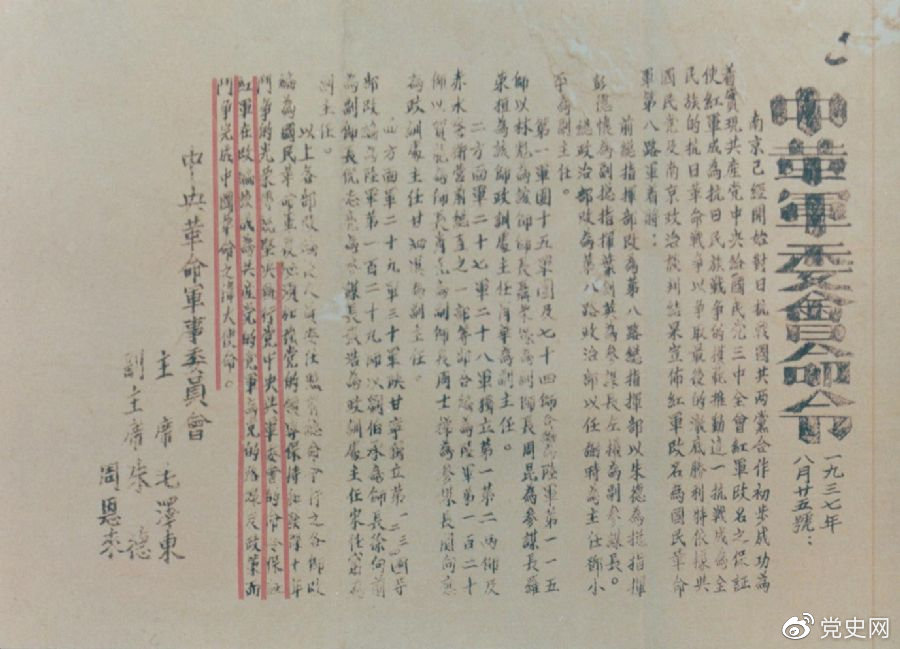 中革軍委會命令
一九三七年
八月廿五號：
南京已經開始對日抗戰國共兩黨合作初步成功為
着實現共産党中央給國民党三中全會紅軍改名之保証
使紅軍成為抗日民族戰争的模範推動這一抗戰成為全
民族的抗日革命戰争以争取最後的澈底勝利特依據共
國民党及南京政治談判結果宣佈紅軍改名為國民革命
軍第八路軍着將：
前總指揮部改為第八路總指揮部以朱德為總指揮
彭德懷為副總指揮葉劍英為參謀長左權為副參謀長。
總政治部改為第八路政治部以任弼時為主任鄧小
平為副主任。
第一軍團十五軍團及七十四師合編為陸軍第一一五
師以林彪為該師師長聶榮臻為副師長周昆為參謀長羅
榮桓為該師政訓處主任肖華為副主任。
二方面軍二十七軍二十八軍獨立第一第二兩師及
赤水警衛營前總直之一部等部合編為陸軍第一百二十
師以賀龍為師長肖克為副師長周士擇為參謀長関向应
為政訓處主任甘泗淇為副主任。
四方面軍二十九軍三十軍陝甘寧獨立第一二三四等
部改編為陸軍第一百二十九師以劉伯承為師長徐向前
為副師長倪志亮為參謀長張浩為政訓處主任宋任窮為
副主任。
以上各部改編後人員委任照前總命令行之各師改
編為國民革命軍後必須加强党的領導保持和發揮十年
鬥争的光榮傳統堅决執行党中央與軍委會的命令保証
紅軍在改編後成為共産党的党軍為党的路線及政策而
鬥争完成中國革命之偉大使命。
中央革命軍事委員會
主席毛澤東
副主席朱德
周恩来
党史网